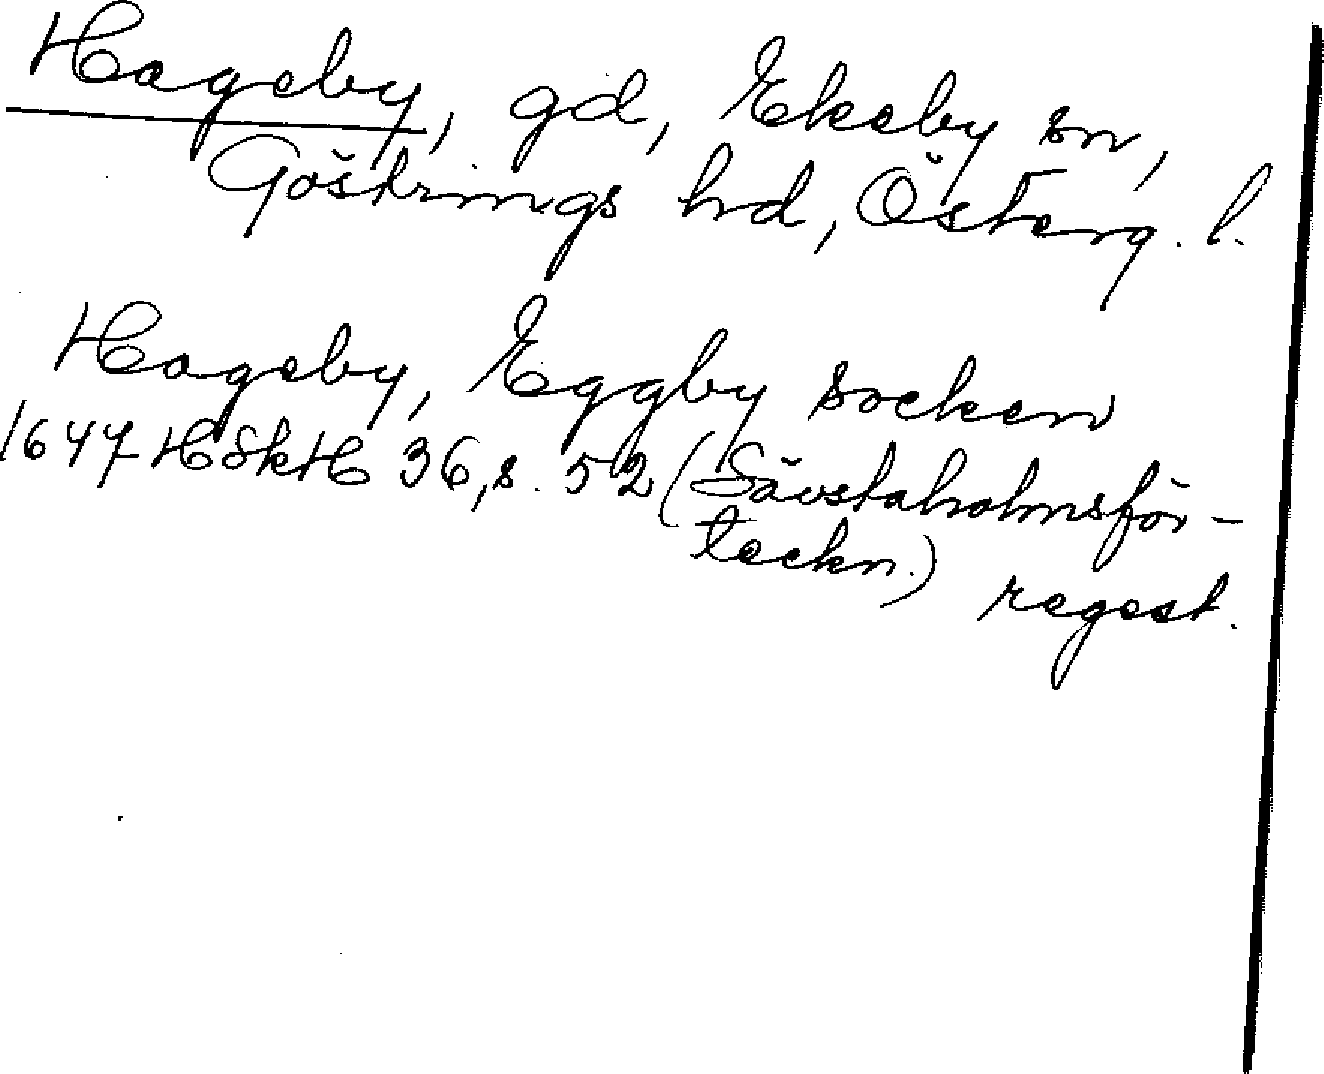 Hageby, gd, Ekeby sn,
Göstrings hd, Österg. l.
Hageby, Eggby socken
1647 HSkH 36, s. 52 (Sävstaholmsför-
teckn.) regest.